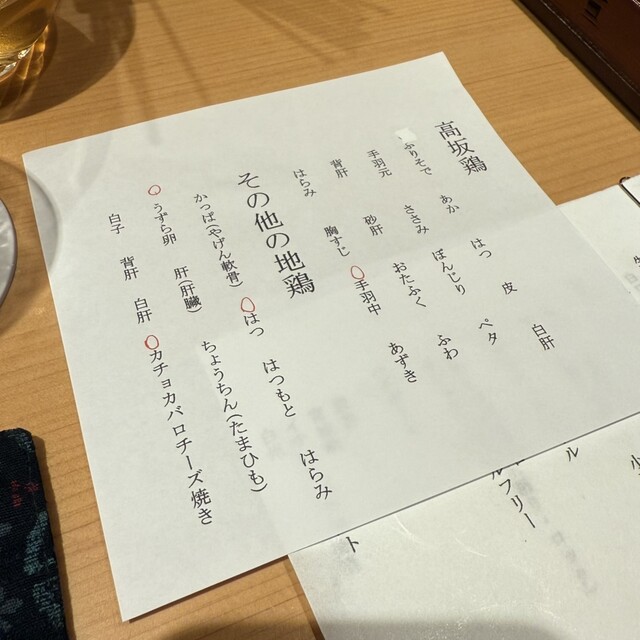 高坂鶏
ふりそで　あか　はつ　皮　白肝
手羽元　ささみ　ぼんじり　ペタ
背肝　砂肝　おたふく　ふわ
はらみ　胸すじ　手羽中　あずき
その他の地鶏
かっぱ(やげん軟骨)　はつ　はつもと　はらみ
うずら卵　肝(肝臓)　ちょうちん(たまひも)
白子　背肝　白肝　カチョカバロチーズ焼き
小
ル
ルフリー
ト